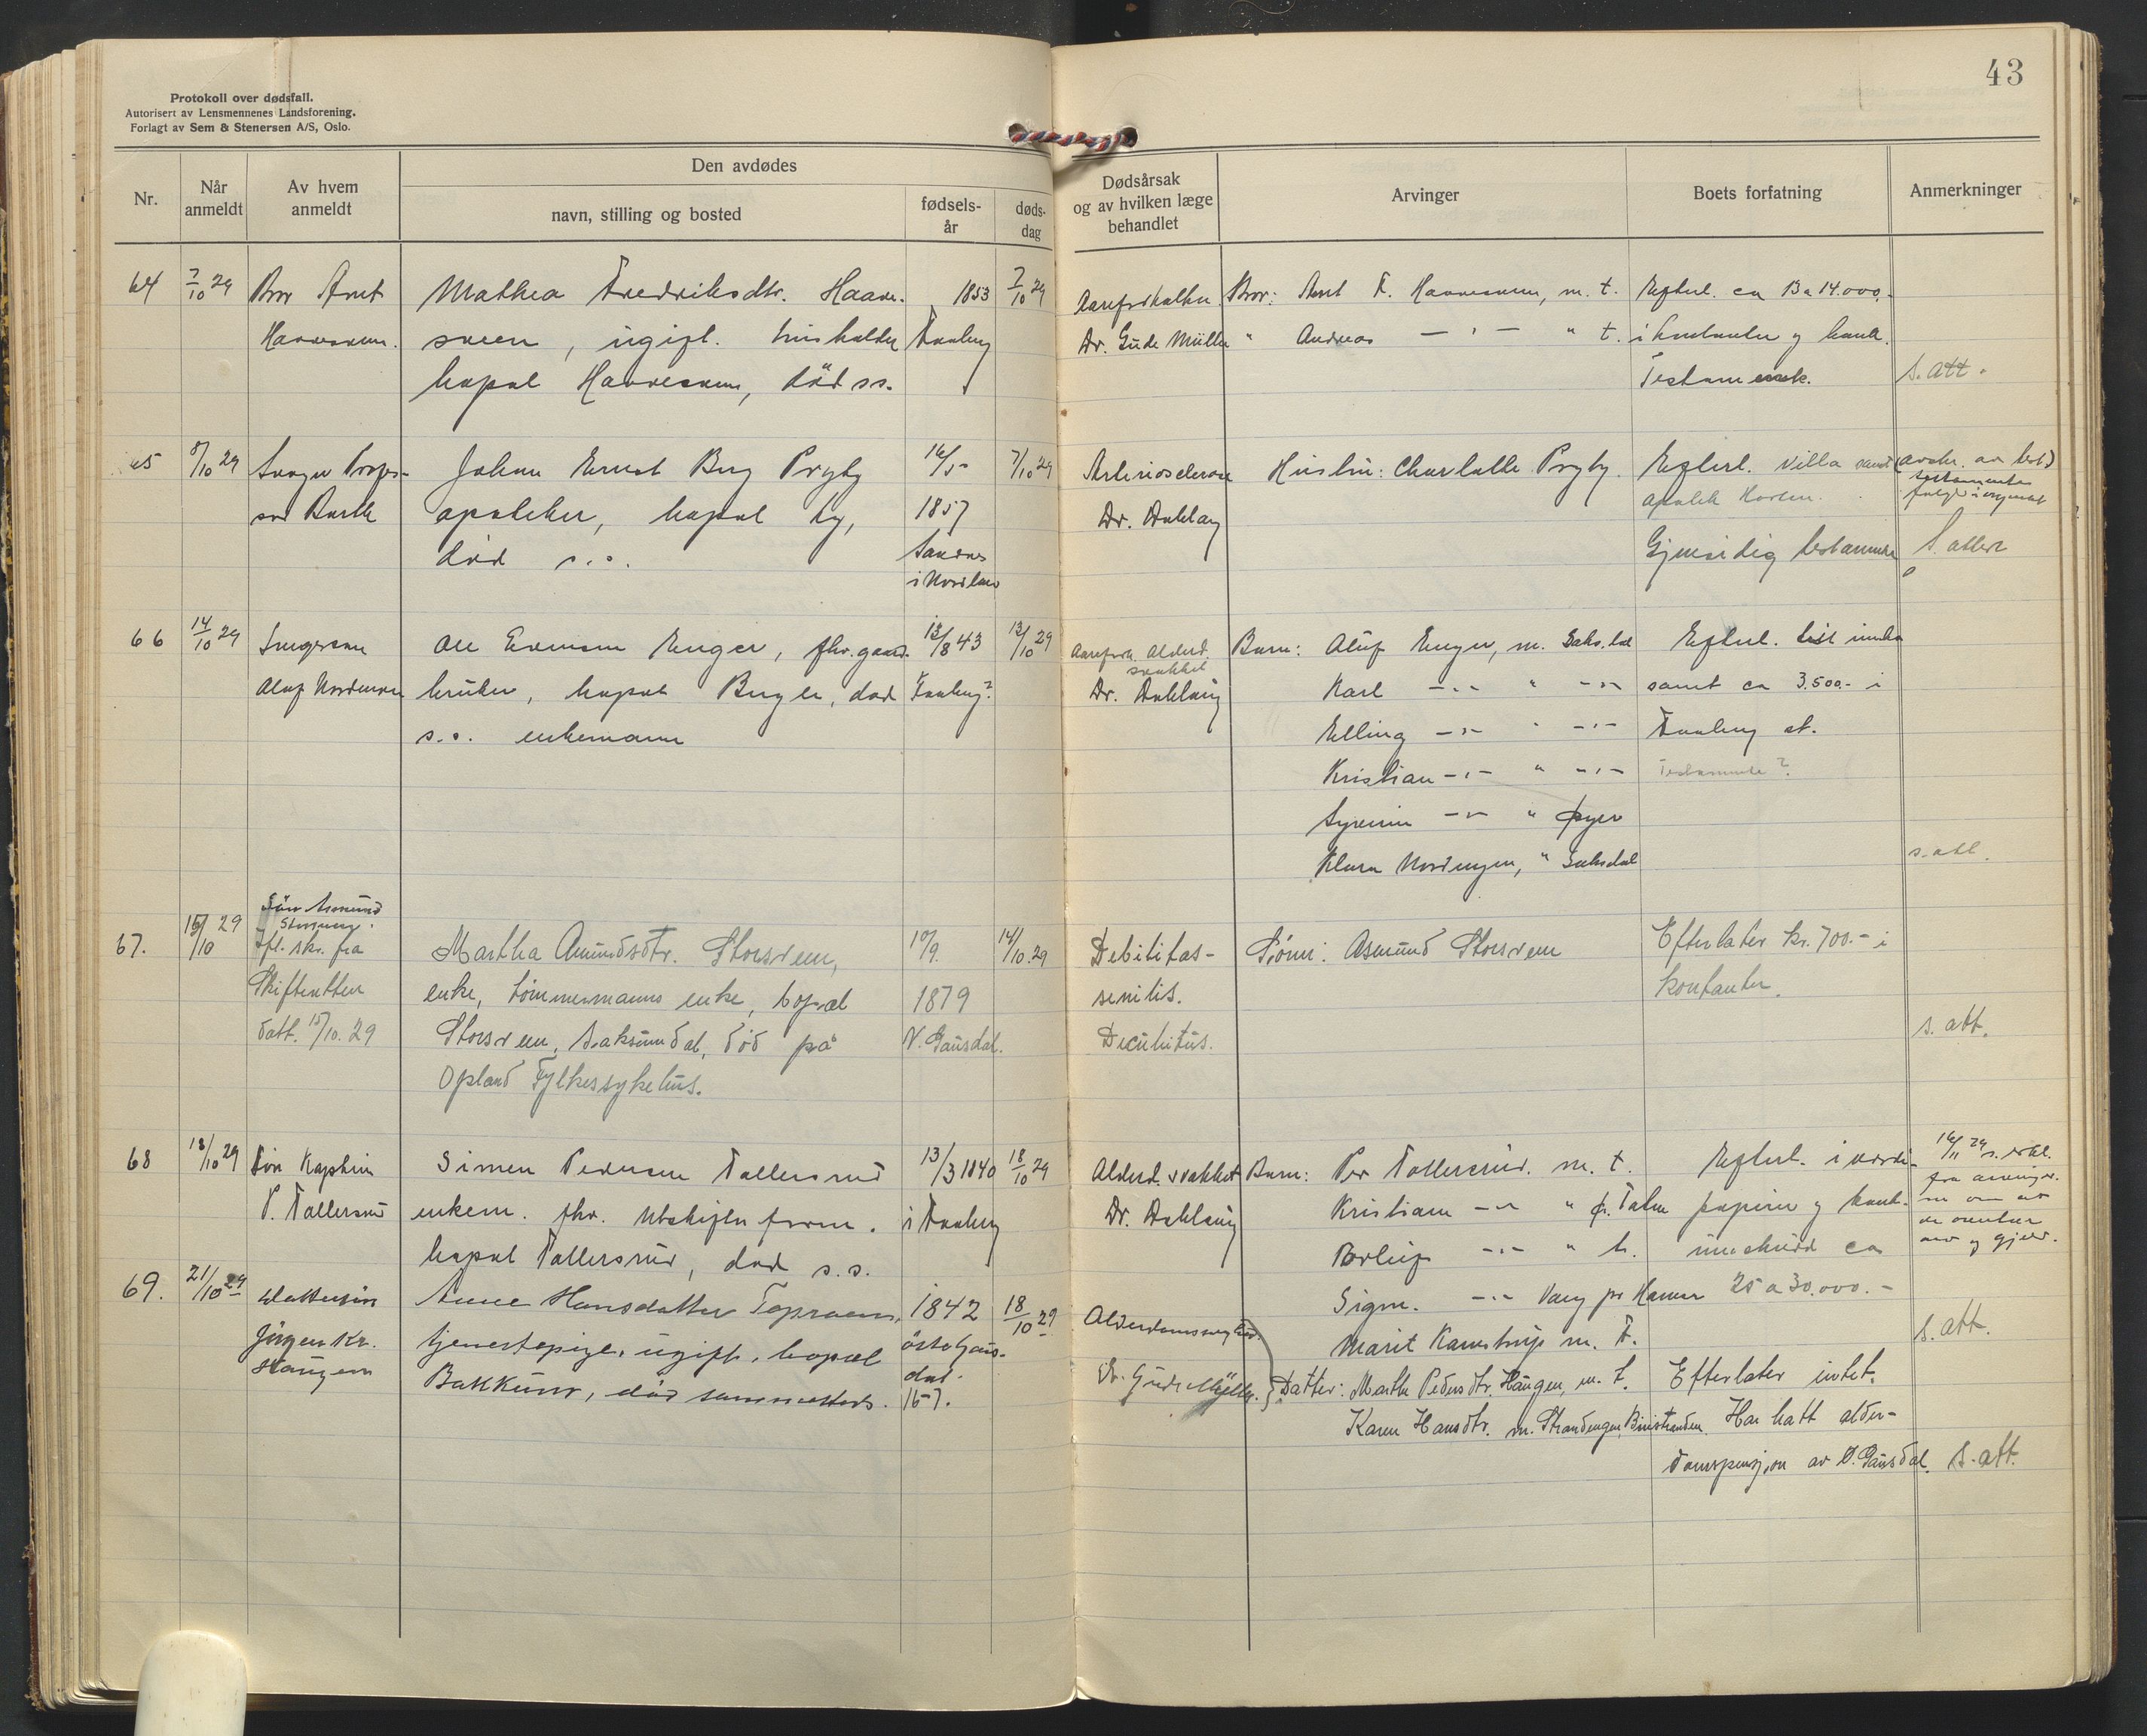 43
Protokoll over dødsfall.
Autorisert av Lensmennenes Landsforening.
Forlagt av Sem & Stenersen A/S, Oslo.
Nr.
Når anmeldt
Av hvem anmeldt
Den avdødes
navn, stilling og bosted
fødsels-år
døds-dag
Dødsårsak og av hvilken læge behandlet
Arvinger
Boets forfatning
Anmerkninger
64
7/10 29
Bror Arnt
Mathea Fredriksdtr. Haave-
sveen, ugift. husholder
bopæl Haavesveen, död ss.
1853
Faaberg
7/10 29
Dr. Gude Müller
Bror: Arnt F. Haavesveen, m. t.
" Andreas — " — " t.
Efterl. ca 13 a 14.000,-
i kontanter og bank.
Testamente.
s. att.
65
8/10 29
Svoger Profes-
sor Barth
Johan Ernst Berg Pryty
apoteker, bopæl by,
död s.s.
16/5-
1857
i Nordland
7/10 29
Arteriosclerose
Dr. Dahlaug
Hustru: Charlotte Pryty.
Efterl. Villa samt
apotek
Gjensidig testamente
(avskr. av test.)
s. attest
66
14/10 29
Svigersøn
Ole Evensen Enger, fhv. gaard-
bruker, bopæl Enger, död
s.s. enkemann
12/8 43
Faaberg?
12/10 29
Alderd.
svakhet
Dr. Dahlaug
Barn: Oluf Enger, m. Saks.dal
Karl —"— " —"—
Elling —"— " —"—
Kristian —"— " —"—
Syverin —"— " Øyer
Klara Nordengen, " Saksdal
Efterl. litt innbo
samt ca 3.500.- i
Faaberg st.
Testamente?
s. att.
67.
15/10 29
Søn Asmund
Storsveen.
Ifl. skr. fra
Skifteretten
datt. 15/10. 29
Martha Amundsdtr. Storsveen,
enke, tømmermanns enke, bopæl
Storsveen, Saksumdal, død på
Opland Fylkessykehus.
10/9.
1879
V. Gausdal.
14/10. 29
Debilitas-
senilis.
Decubitus.
Sønn: Asmund Storsveen
Efterlater kr. 700.- i
kontanter.
s. att.
68
18/10 29
Søn Kaptein
P. Tollersrud
Simen Pedersen Tollersrud
enkem. fhv. utskiftn. form.
bopæl Tollersrud, død s.s.
13/3 1840
i Faaberg
18/10 29
Alderd. svakhet
Dr. Dahlaug
Barn: Per Tollersrud. m. t.
Kristiane —"— "
—"— " h.
Signe. —"— Vang pr Hamar
Marit Kamstrup m. F.
Efterl. i verdi-
papirer og bank-
innskudd ca
25 a 30.000.-
14/11 29 s. erkl.
fra arvinger-
ne om at
de overtar
arv og gjeld.
s. att.
69.
21/10 29
Dattersön
Jörgen Kr.
Haugen
Anne Hansdatter Toproen,
tjenestepige, ugift, bopæl
Bakkum, död sammesteds.
1842
östre Gaus-
dal.
15-7.
18/10 29
Dr. Gude Mjölle.
Datter: Marthe Pedersdtr. Haugen, m. t.
Karen Hansdtr. m. Strandengen, Biristranden.
Efterlater intet.
Har hatt alder-
domspensjon av Ø. Gausdal.
s. att.